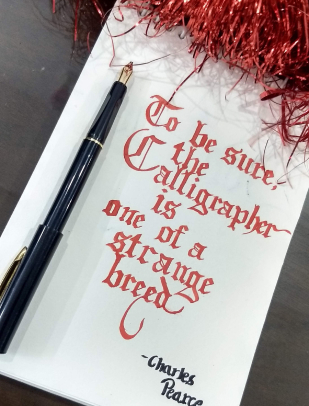 To be sure,
the
Calligrapher
is
one of a
strange
breed
-Charles
Pearce